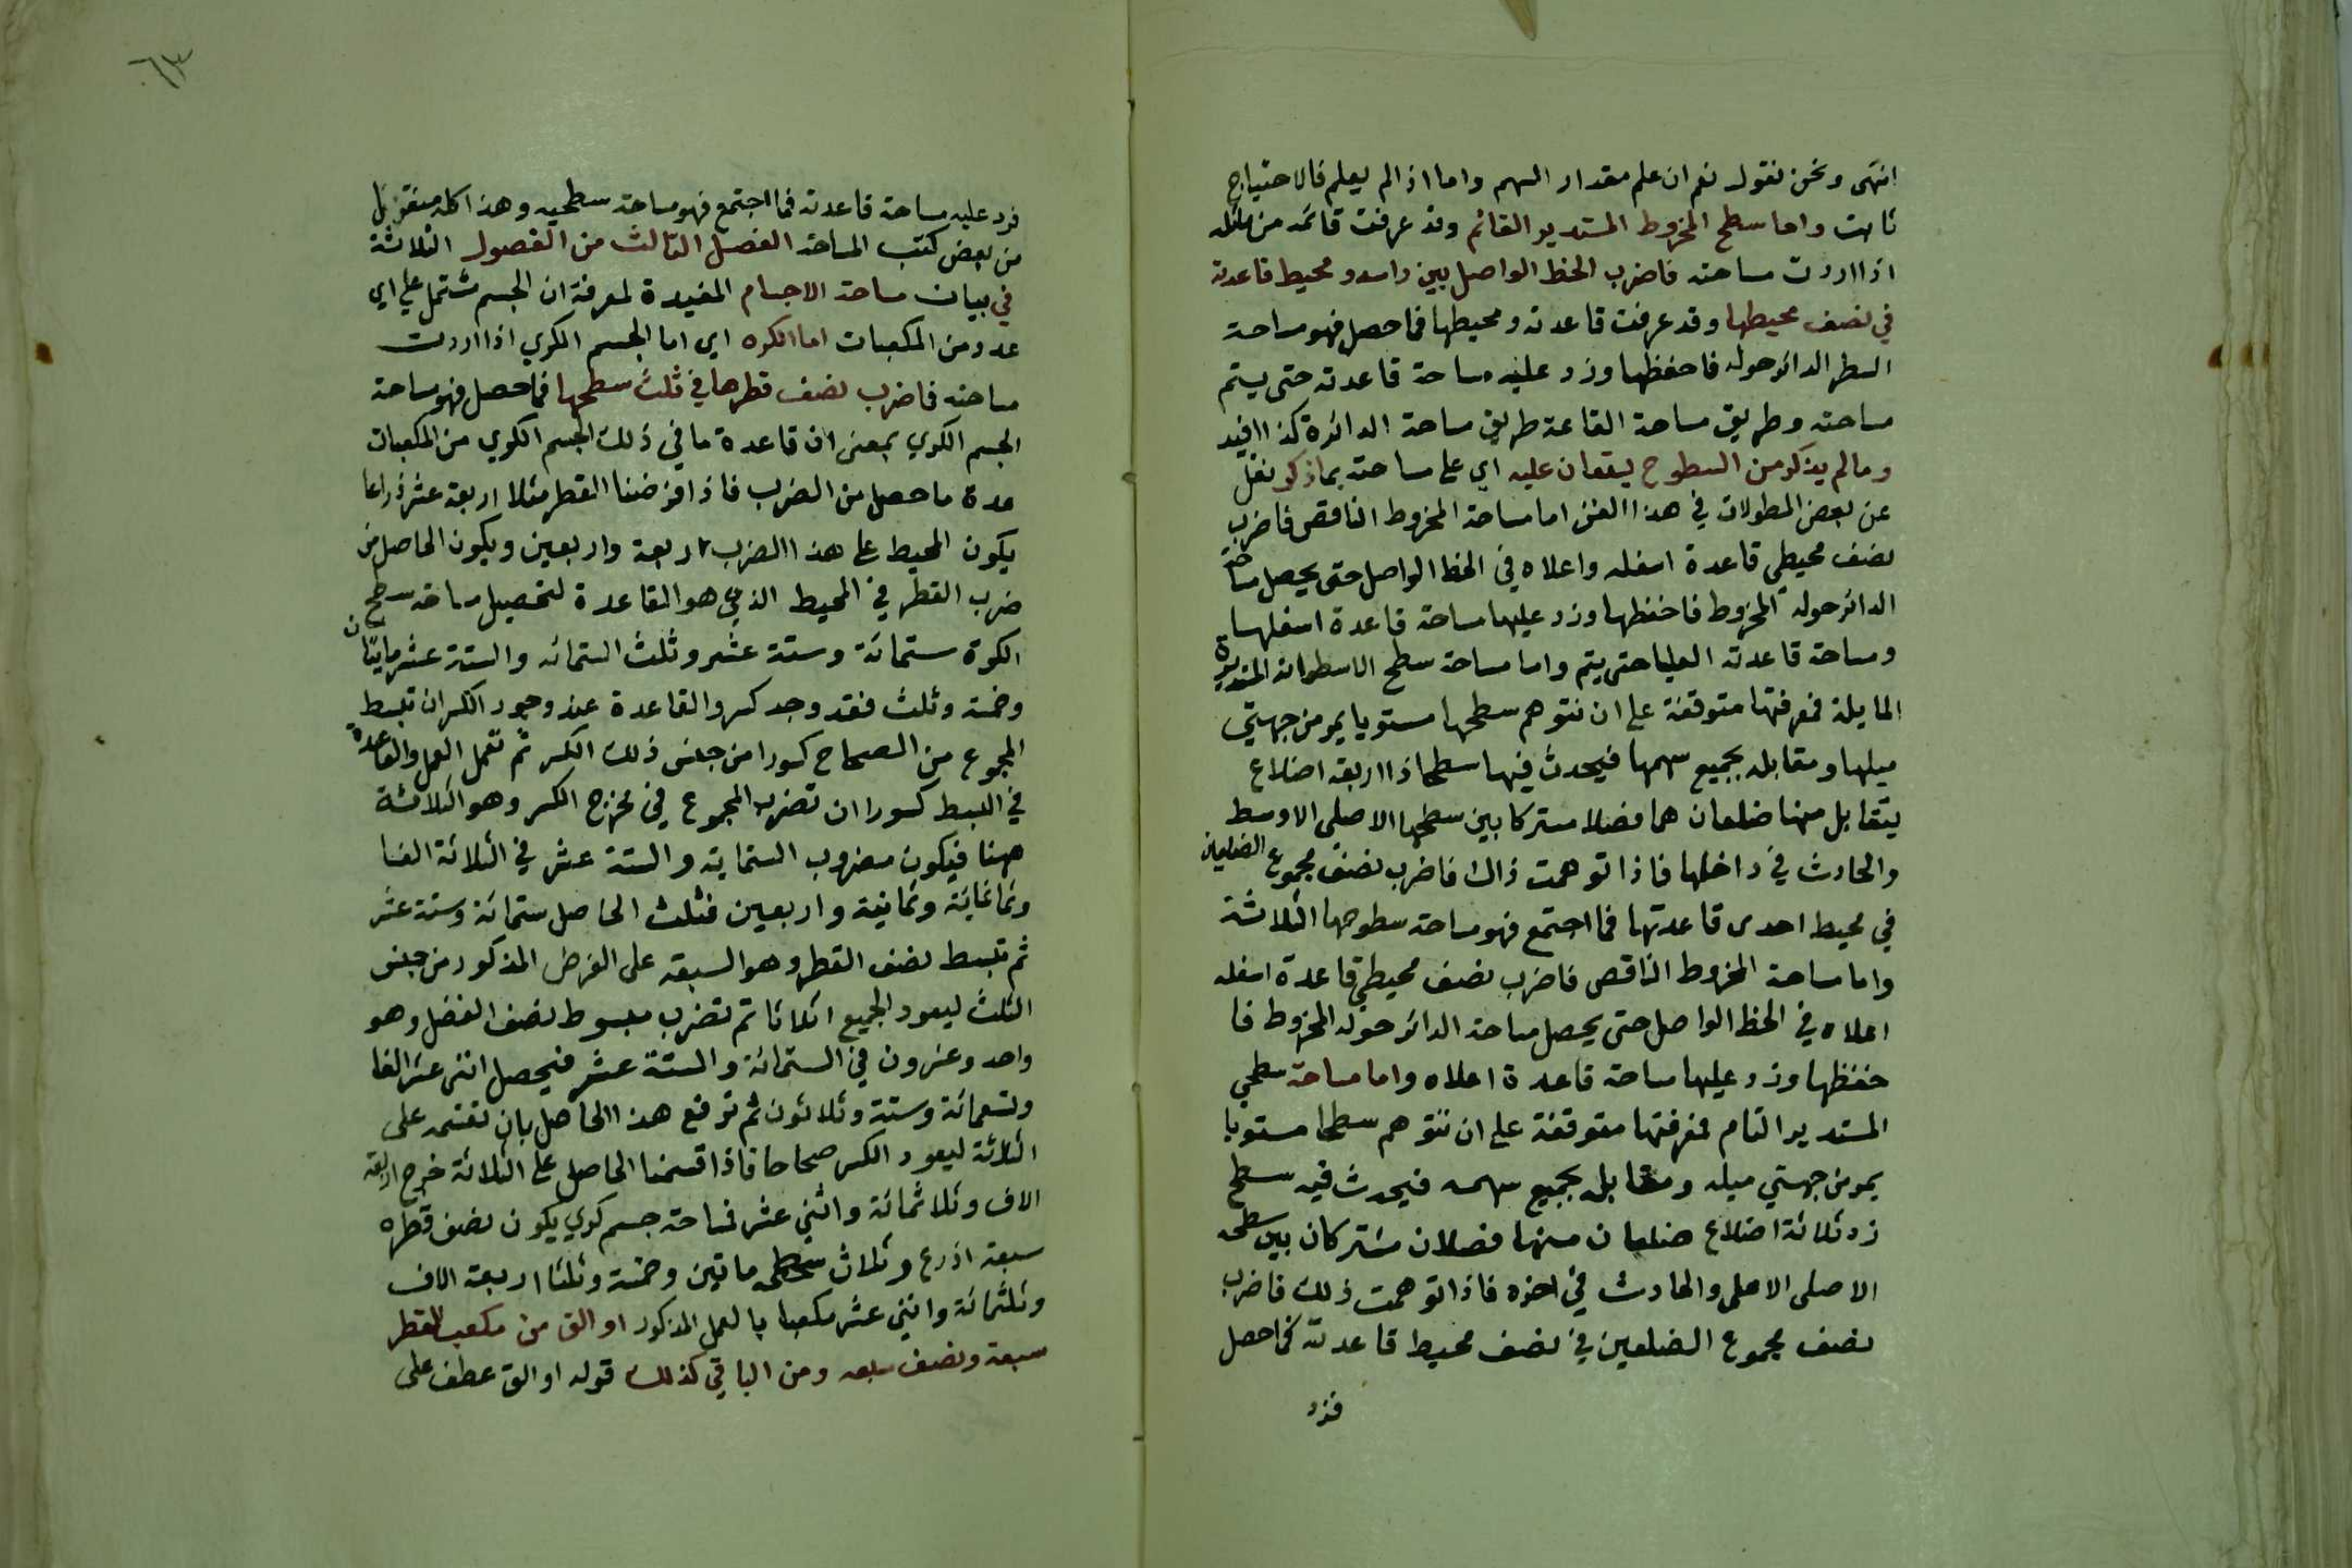 انتهى ونحن نقول نعم ان علم مقدار السهم واما اذا لم يعلم فالاحتياج
ثابت واما سطح المخروط المستدير القائم وقد عرفت قائمه من مائله
اذا اردت مساحته فاضرب الخط الواصل بين راسه ومحيط قاعدته
في نصف محيطها وقد عرفت قاعدته ومحيطها فما حصل فهو مساحة
السطر الدائر حوله فاحفظها وزد عليه مساحة قاعدته حتى يستم
مساحته وطريق مساحة القاعة طريق مساحة الدائرة كذا افيد
وما لم يذكر من السطوح يستعان عليه اي على مساحته بما ذكر نقل
عن بعض المطولات في هذا الفن اما مساحة المخروط الناقص فاضرب
نصف محيطي قاعدة اسفله واعلاه في الخط الواصل حتى يحصل مساحة
الدائر حوله المخروط فاحفظها وزد عليها مساحة قاعدة اسفلها
ومساحة قاعدته العليا حتى يتم واما مساحة سطح الاسطوانة المستديرة
المايلة فمعرفتها متوقفة على ان نتوهم سطحها مستويا يمر من جهتي
ميلها ومقابله بجميع سهمها فيحدث فيها سطحا ذا اربعة اضلاع
يتقابل منها ضلعان هما فضلا مستركا بين سطحها الاصلي الاوسط
والحادث في داخلها فاذا توهمت ذلك فاضرب نصف مجموع الضلعين
في محيط احدى قاعدتها فما اجتمع فهو مساحة سطوحها الثلاثة
واما مساحة المخروط الناقص فاضرب نصف محيطي قاعدة اسفله
اعلاه في الخط الواصل حتى يحصل مساحة الدائر حوله المخروط فا
حفظها وزد عليها مساحة قاعدة اعلاه واما مساحة سطحي
المستدير التام فمعرفتها متوقفة على ان نتوهم سطحا مستويا
يمر من جهتي ميله ومقابله بجميع سهمه فيحدث فيه سطح
زد ثلاثة اضلاع ضلعان منها فضلان مشتركان بين سطحه
الاصلى الاعلى والحادث في اخره فاذا توهمت ذلك فاضرب
نصف مجموع الضلعين في نصف محيط قاعدته فما حصل
فزد
٦٣
فزد عليه مساحة قاعدته فما اجتمع فهو مساحة سطحيه وهذا كله منقول
من بعض كتب المساحة الفصل الثالث من الفصول الثلاثة
في بيان مساحة الاجسام المفيدة لمعرفة ان الجسم مشتمل على اي
عدد من المكعبات اما الكره اي اما الجسم الكري اذا اردت
مساحته فاضرب نصف قطرها في ثلث سطحها فما حصل فهو مساحة
الجسم الكري بمعنى ان قاعدة ما في ذلك الجسم الكري من المكعبات
عدة ما حصل من الضرب فاذا فرضنا القطر مثلا اربعة عشر ذراعا
يكون المحيط على هذا الضرب اربعة واربعين ويكون الحاصل من
ضرب القطر في المحيط الذي هو القاعدة لتحصيل مساحة سطح
الكرة ستمائة وستة عشر وثلث الستمائه والستة عشر مايتان
وخمسة وثلث فقد وجد كسر والقاعدة عند وجود الكسر ان تبسط
المجموع من الصحاح كسورا من جنس ذلك الكسر ثم تعمل العمل والقاعدة
في البسط كسورا ان تضرب المجموع في مخرج الكسر وهو الثلاثة
ههنا فيكون مضروب الستماية والستة عشر في الثلاثة الفا
وثمانماية وثمانية واربعين فثلث الحاصل ستمائة وستة عشر
ثم تبسط نصف القطر وهو السبعة على الفرض المذكور من جنس
الثلث ليعود الجميع اثلاثا ثم تضرب مبسوط نصف الفضل وهو
واحد وعشرون في الستمائة والستة عشر فيحصل اثنى عشر الفا
وتسعمائة وستة وثلاثون ثم ترفع هذا الحاصل بان تقسمه على
الثلاثة ليعود الكسر صحاحا فاذا قسمنا الحاصل على الثلاثة خرج اربعة
الاف وثلاثمائة واثني عشر فمساحة جسم كري يكون نصف قطره
سبعة اذرع وثلاث سطحه ماتين وخمسة وثلثا اربعة الاف
وثلثمائة واثني عشر مكعبا بالعمل المذكور او الق من مكعب القطر
سبعة ونصف سبعه ومن الباقي كذلك قوله او الق عطف على